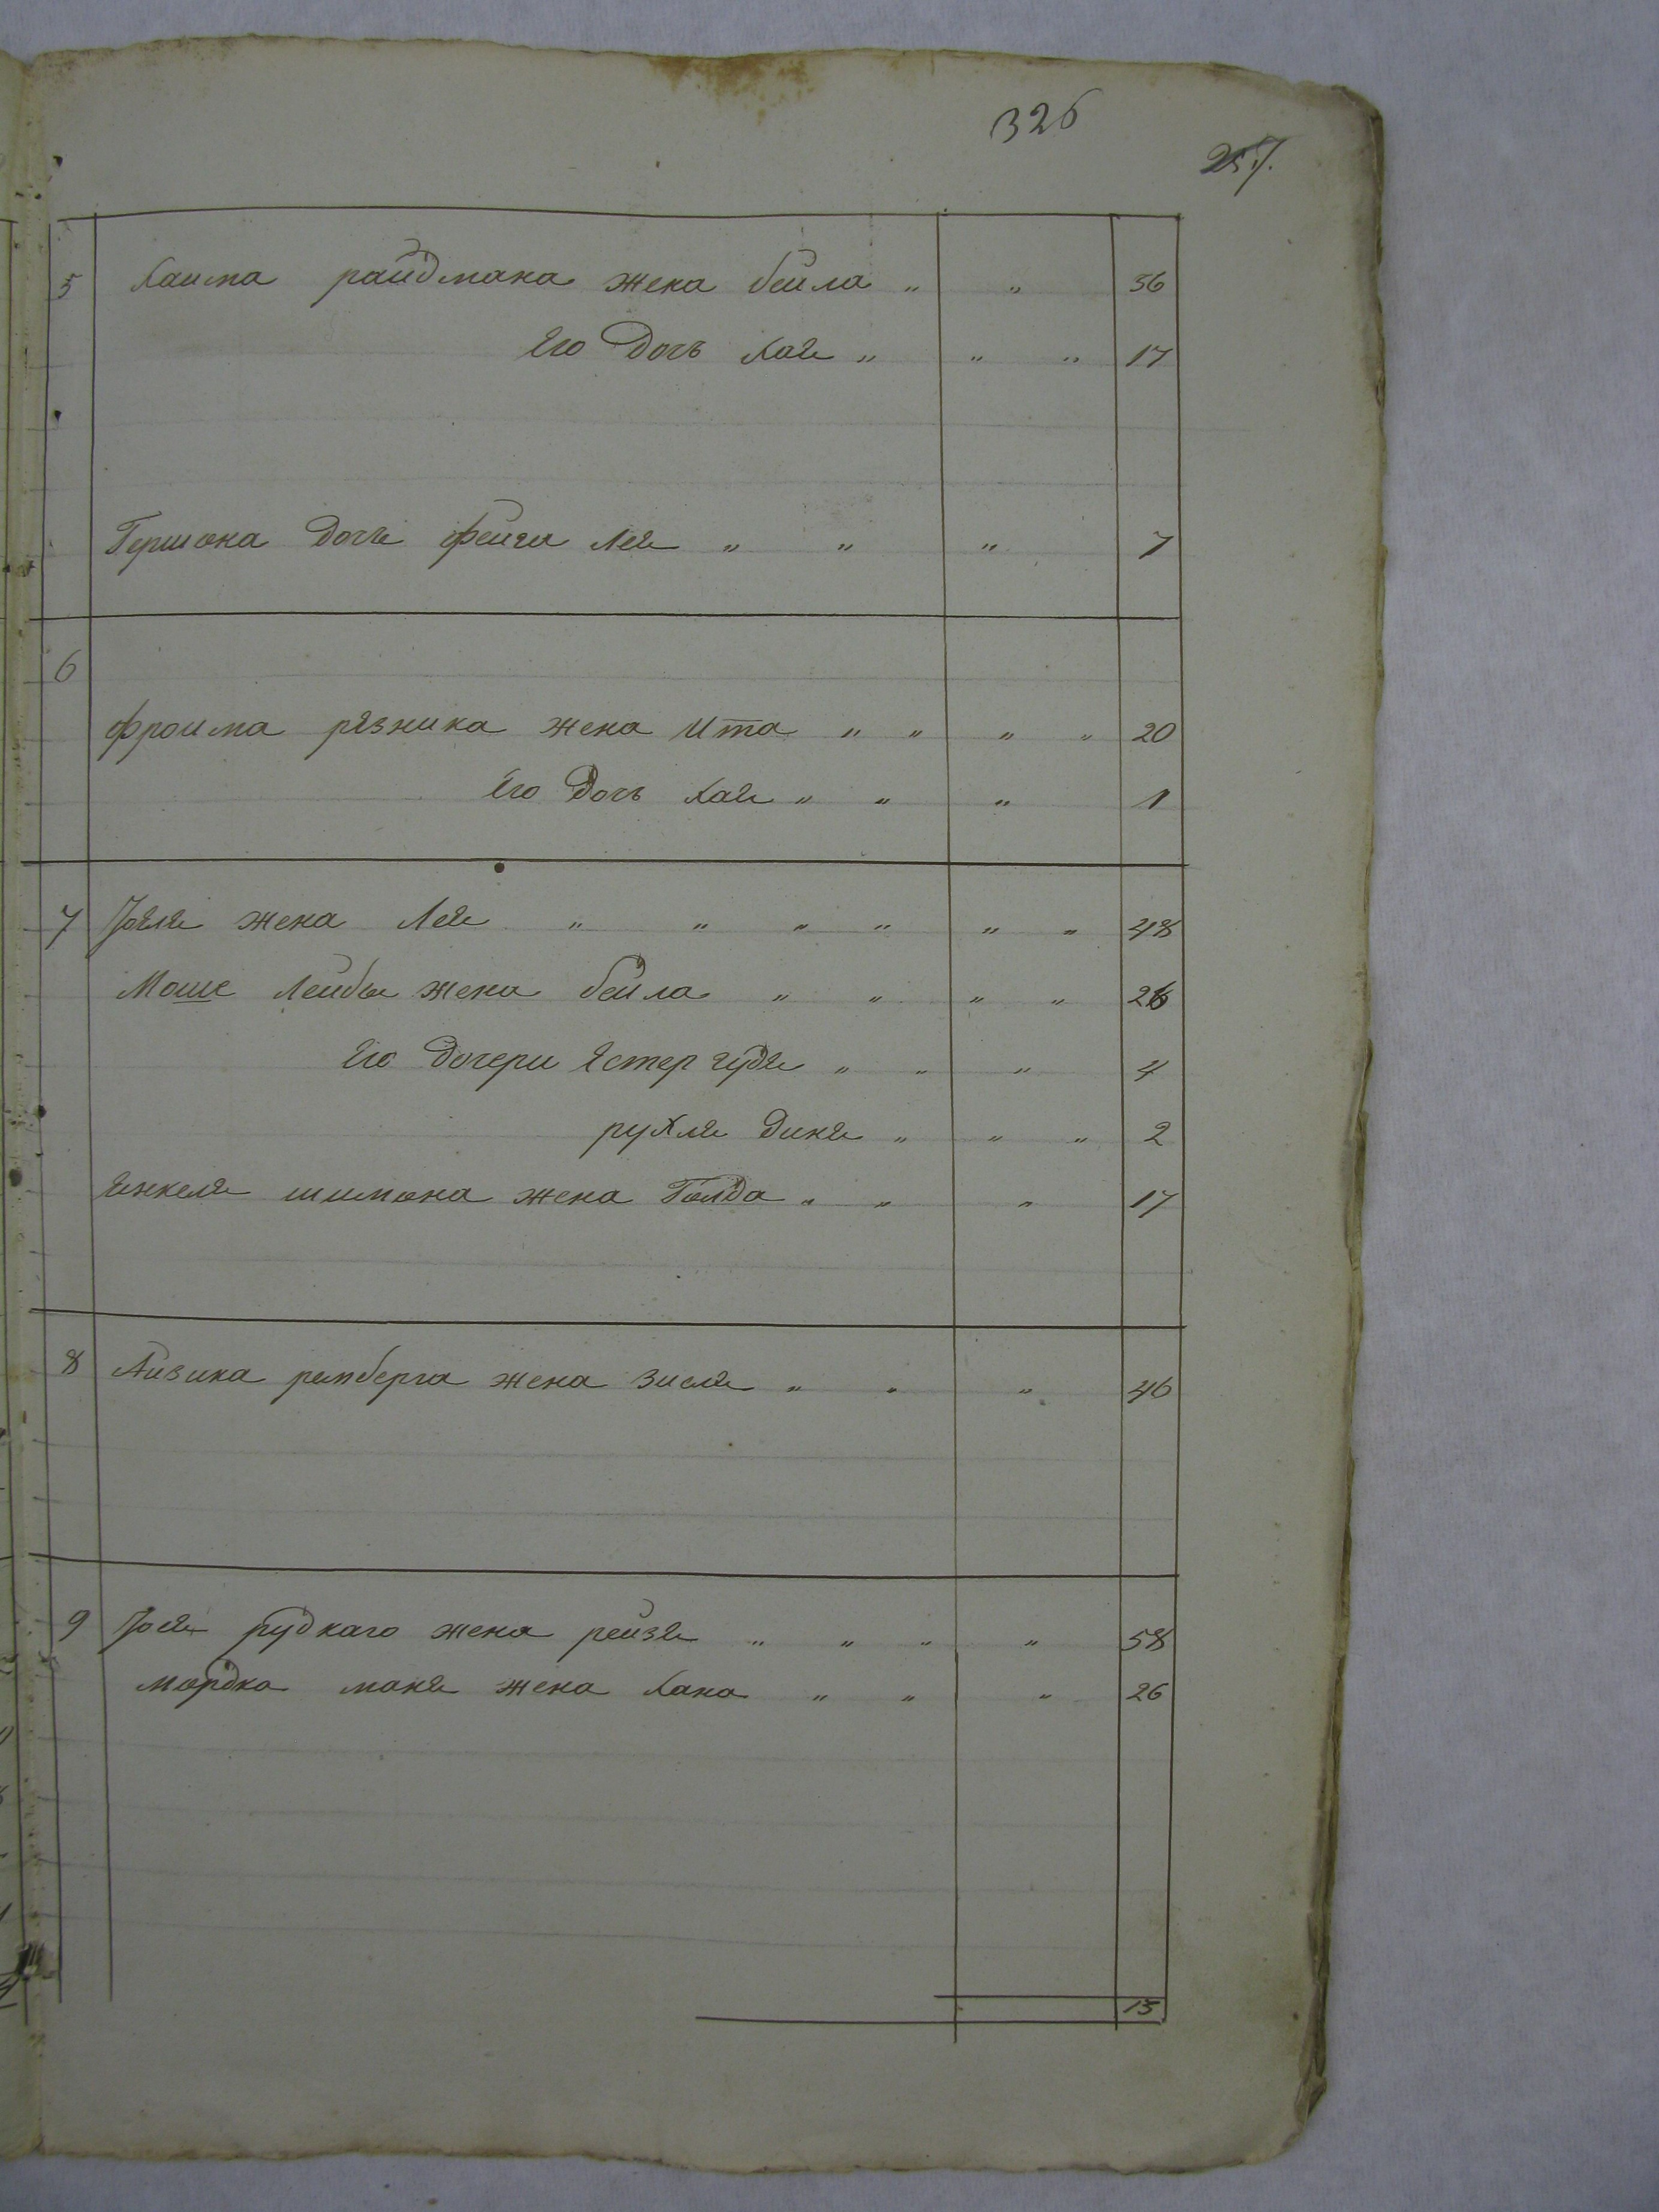 326
257.
5 Хаима райдмана жена бейла " " 36
Его Дочь Хая " " " 17
Гершона Дочь фейга Лея " " " 7
6
фроима резника жена Ита " " " " 20
Его Дочь Хая " " " 1
7 Иоеля жена Лея " " " " " " 48
Моше Лейбы жена бейла " " " " 26
Его дочери Естер гудя " " " 4
рухля диня " " " 2
Янкеля шимона жена Голда " " " 17
8 Айзика ремберга жена зися " " " 46
9 Иося рудкаго жена рейзя " " " " 58
мордка маня жена Хана " " " 26
15